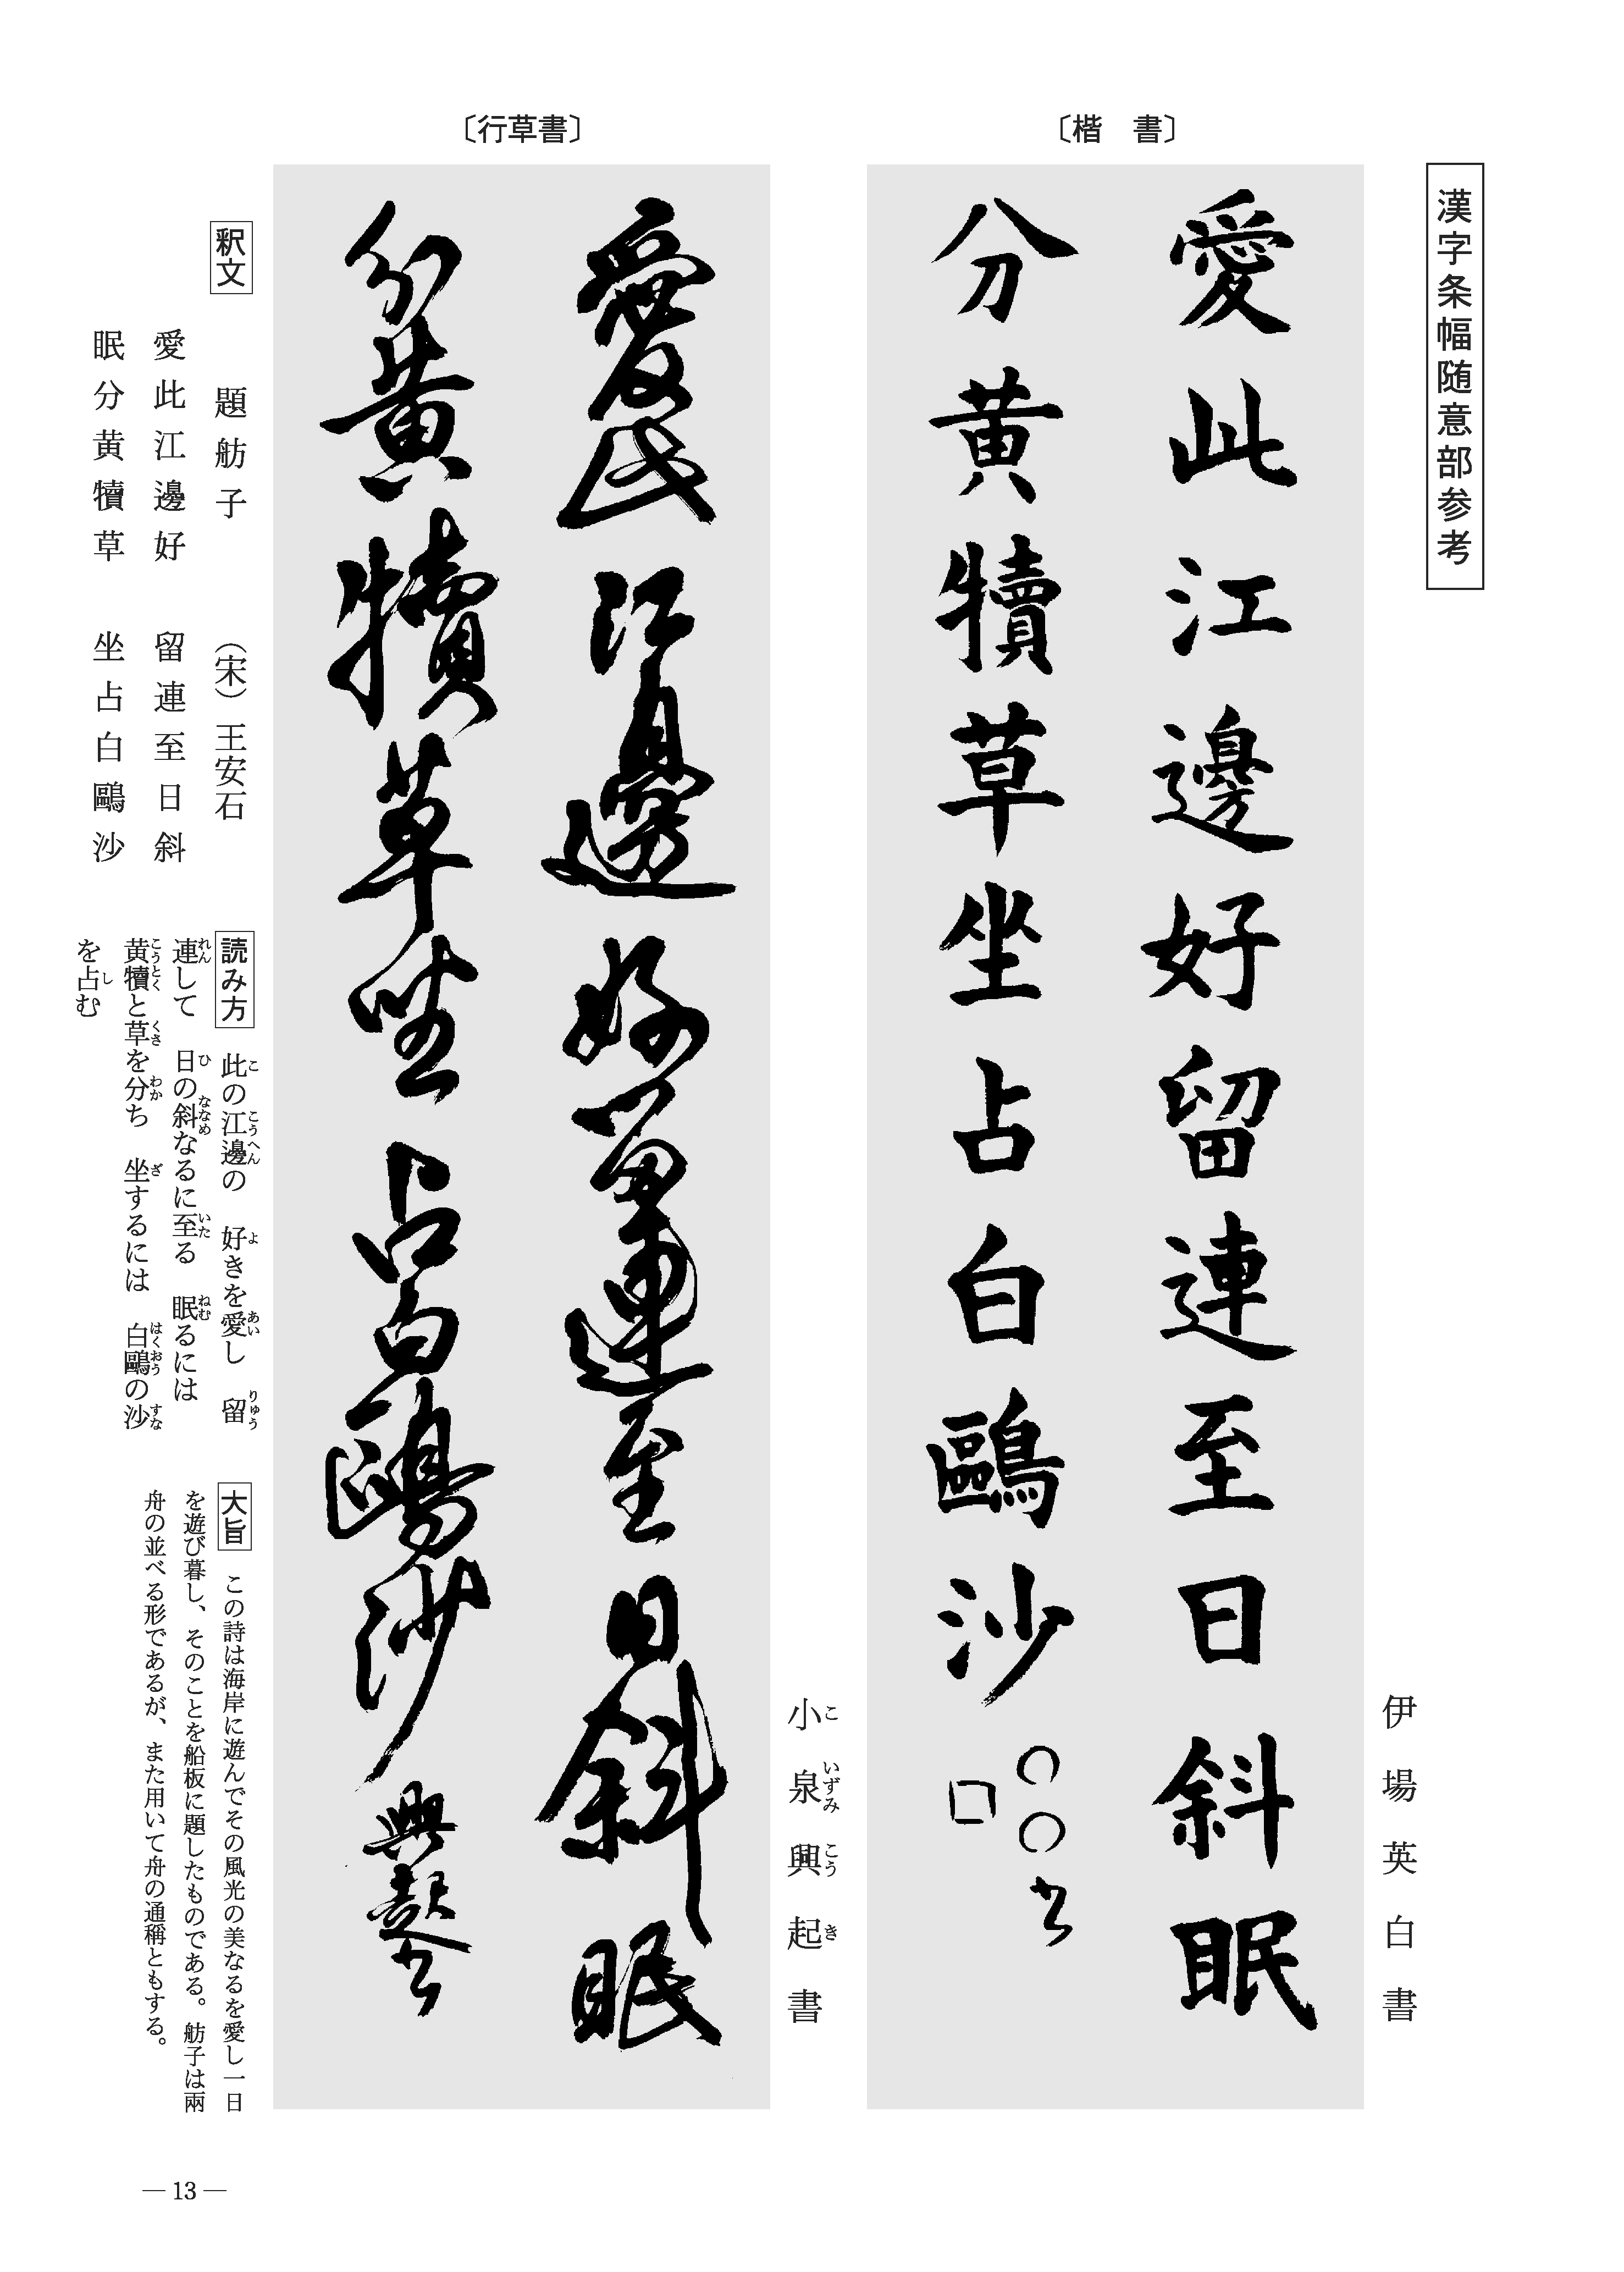 漢字条幅随意部参考
〔楷　書〕
伊場英白書
愛此江邊好留連至日斜眠
分黄犢草坐占白鷗沙
〇〇書
□
〔行草書〕
小泉興起書
こいずみこうき
愛此江邊好留連至日斜眠
分黄犢草坐占白鷗沙 興起書
釈文
題舫子　（宋）王安石
愛此江邊好　留連至日斜
眠分黄犢草　坐占白鷗沙
読み方　此の江邊の　好きを愛し　留
こ　こうへん　よ　あい　りゅう
連して　日の斜なるに至る　眠るには
れん　ひ　ななめ　いた　ねむ
黄犢と草を分ち　坐するには　白鷗の沙
こうとく　くさ　わか　ざ　はくおう　すな
を占む
し
大旨　この詩は海岸に遊んでその風光の美なるを愛し一日
を遊び暮し、そのことを船板に題したものである。舫子は兩
舟の並べる形であるが、また用いて舟の通稱ともする。
— 13 —